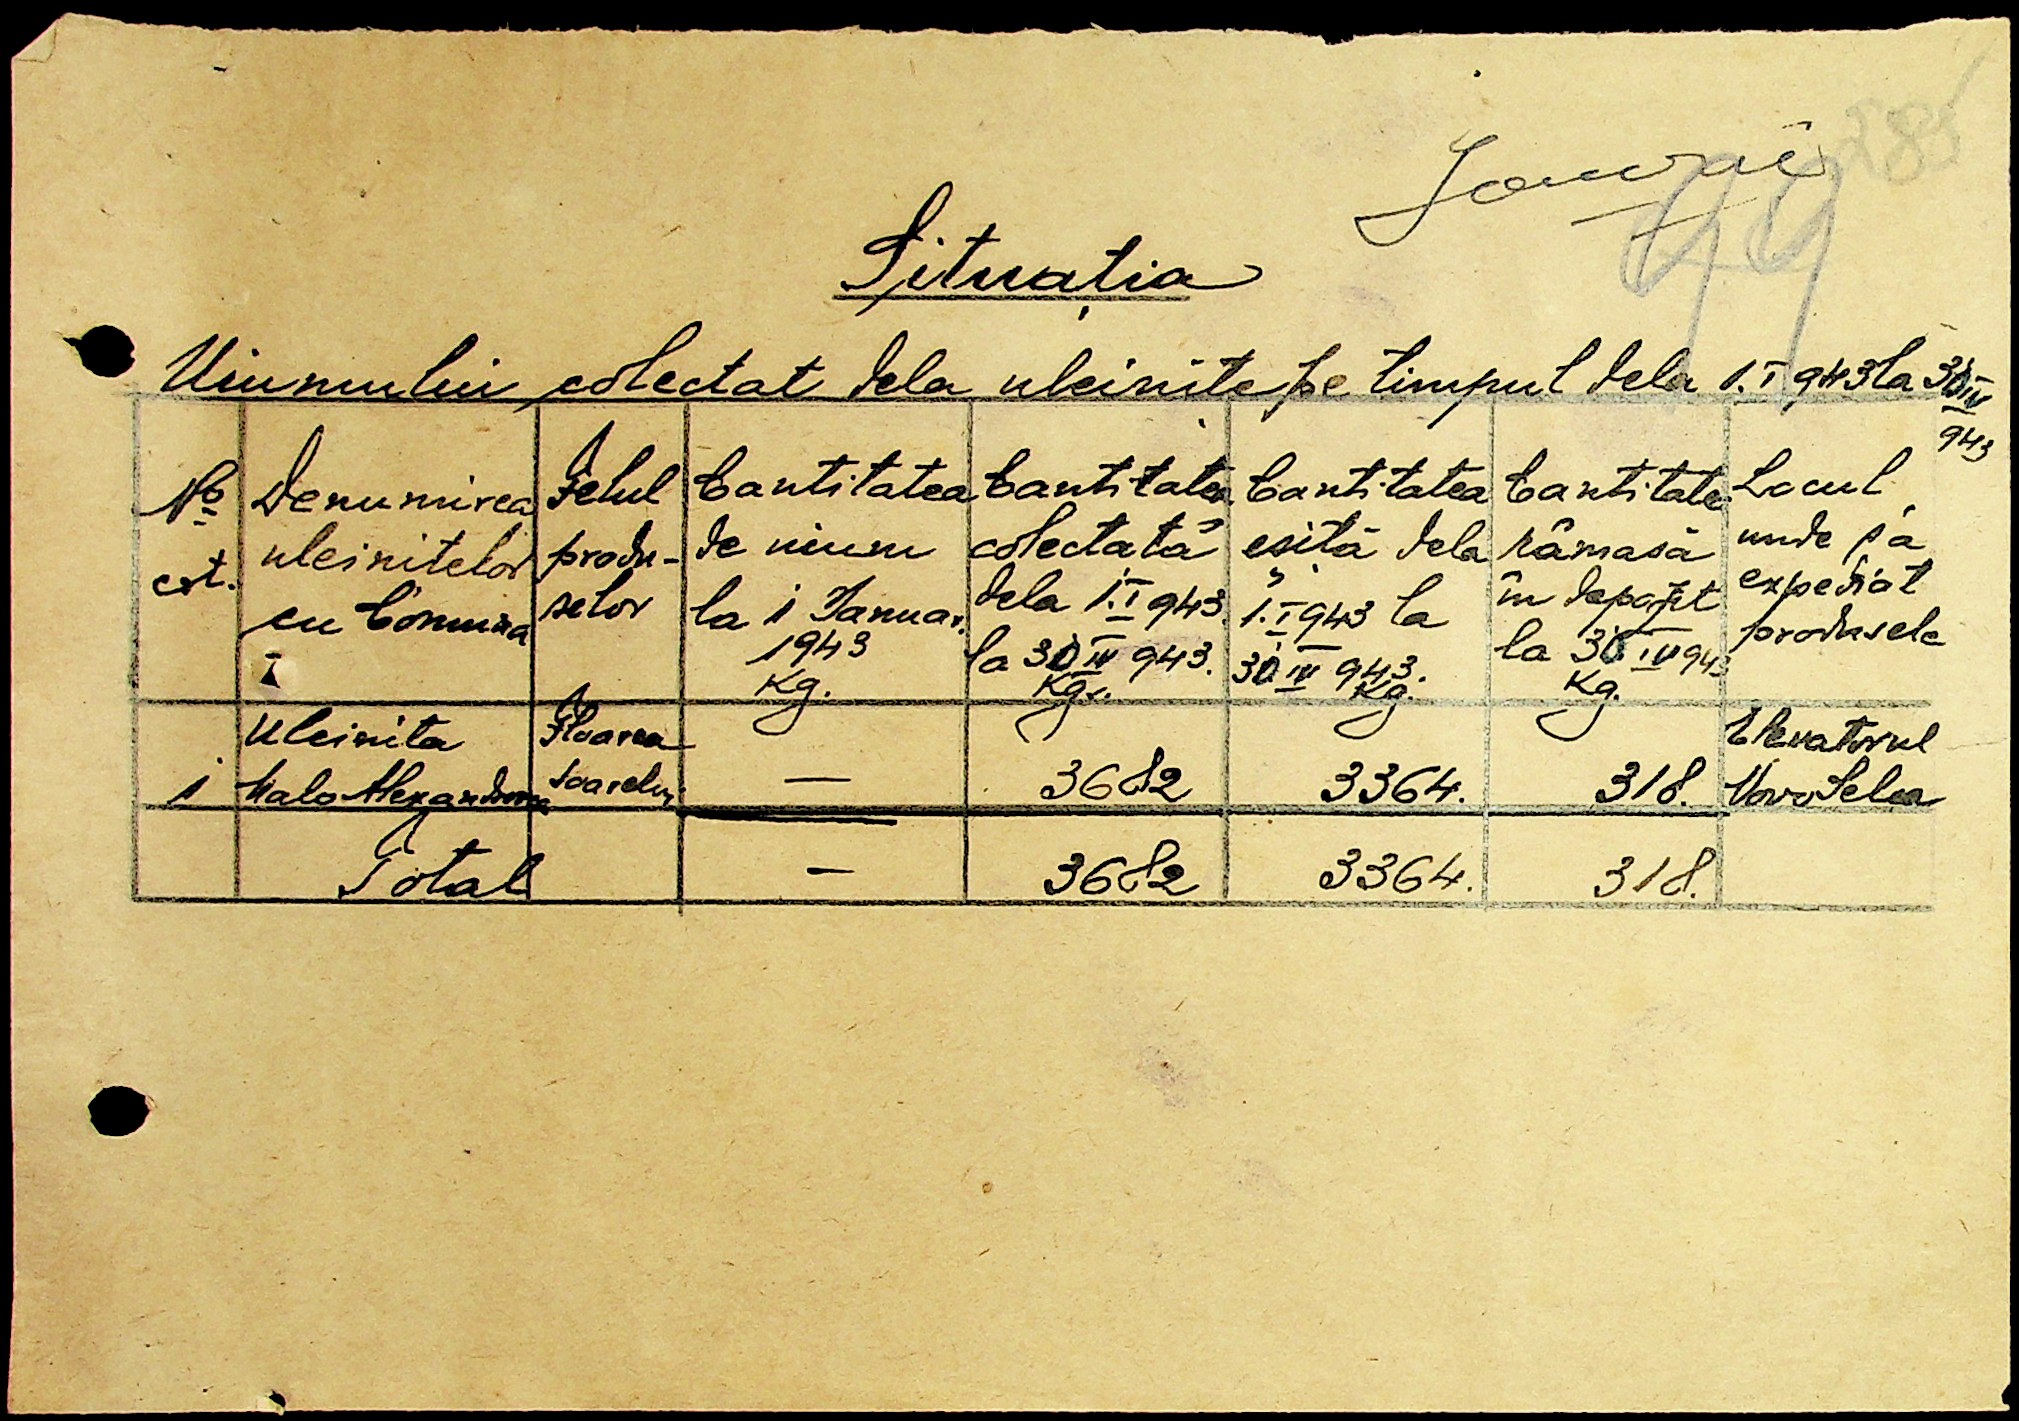 285
44
Situația
Uiumului colectat dela uleinite pe timpul dela 1.I 943 la 30 IV
943
No
crt.
Denumirea
uleinitelor
cu Comuna
I
Felul
produ-
selor
Cantitatea
de uium
la 1 Januar.
1943
Kg.
Cantitatea
colectată
dela 1.I 943.
la 30 IV 943.
Kgr.
Cantitatea
eșită dela
1.I 943 la
30 IV 943.
Kg.
Cantitate
rămasă
în depozit
la 30 IV 943
Kg.
Locul
unde s'a
expediat
produsele
1
Uleinita
Malo Alexandrovca
Floarea
soarelui
—
3682
3364.
318.
Elevatorul
Novo Selca
Total
—
3682
3364.
318.